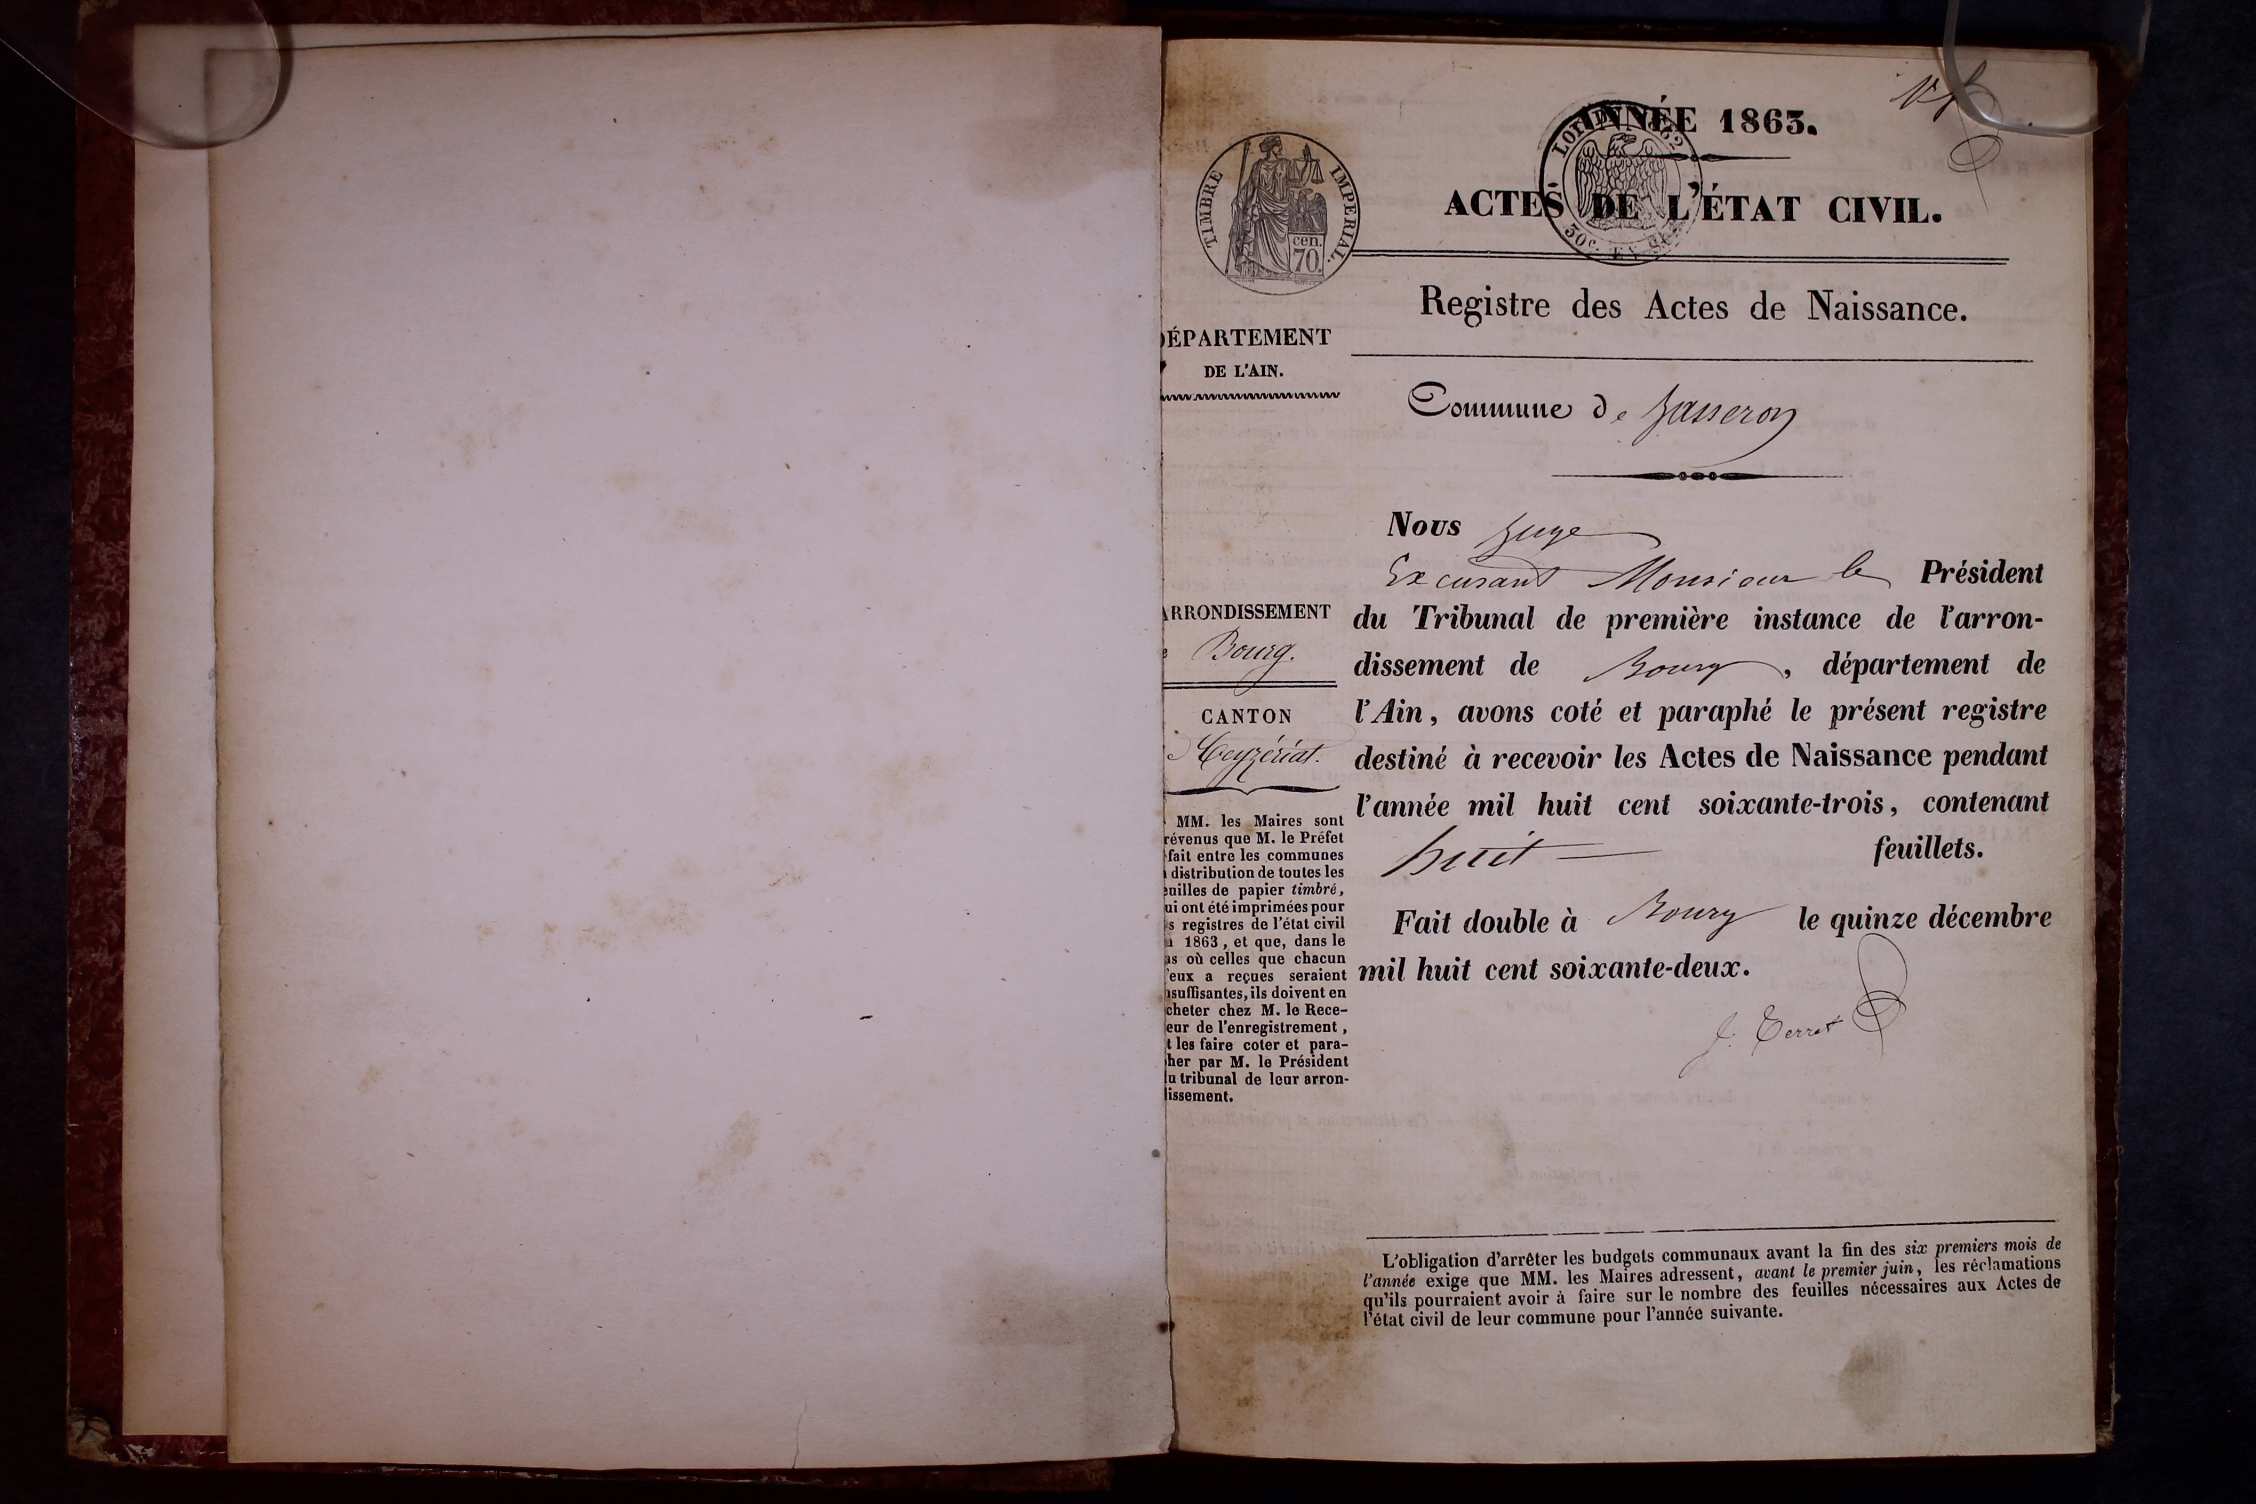 ANNÉE 1863.
ACTES DE L'ÉTAT CIVIL.
TIMBRE IMPERIAL.
cen.
70.
Registre des Actes de Naissance.
DÉPARTEMENT
DE L'AIN.
Commune de Jasseron
Nous Juge
Excusant Monsieur le Président
du Tribunal de première instance de l'arron-
dissement de Bourg, département de
l'Ain, avons coté et paraphé le présent registre
destiné à recevoir les Actes de Naissance pendant
l'année mil huit cent soixante-trois, contenant
huit feuillets.
Fait double à Bourg le quinze décembre
mil huit cent soixante-deux.
J. Terret
ARRONDISSEMENT
e Bourg.
CANTON
Ceyzériat.
MM. les Maires sont
révenus que M. le Préfet
fait entre les communes
a distribution de toutes les
euilles de papier timbré,
ui ont été imprimées pour
s registres de l'état civil
1863, et que, dans le
as où celles que chacun
'eux a reçues seraient
nsuffisantes, ils doivent en
cheter chez M. le Rece-
eur de l'enregistrement,
t les faire coter et para-
her par M. le Président
u tribunal de leur arron-
issement.
L'obligation d'arrêter les budgets communaux avant la fin des six premiers mois de
l'année exige que MM. les Maires adressent, avant le premier juin, les réclamations
qu'ils pourraient avoir à faire sur le nombre des feuilles nécessaires aux Actes de
l'état civil de leur commune pour l'année suivante.